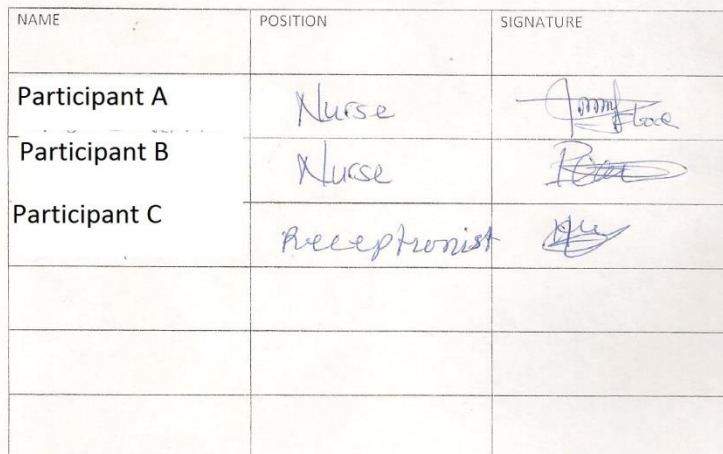 NAME POSITION SIGNATURE
Participant A Nurse
Participant B Nurse
Participant C Receptionist